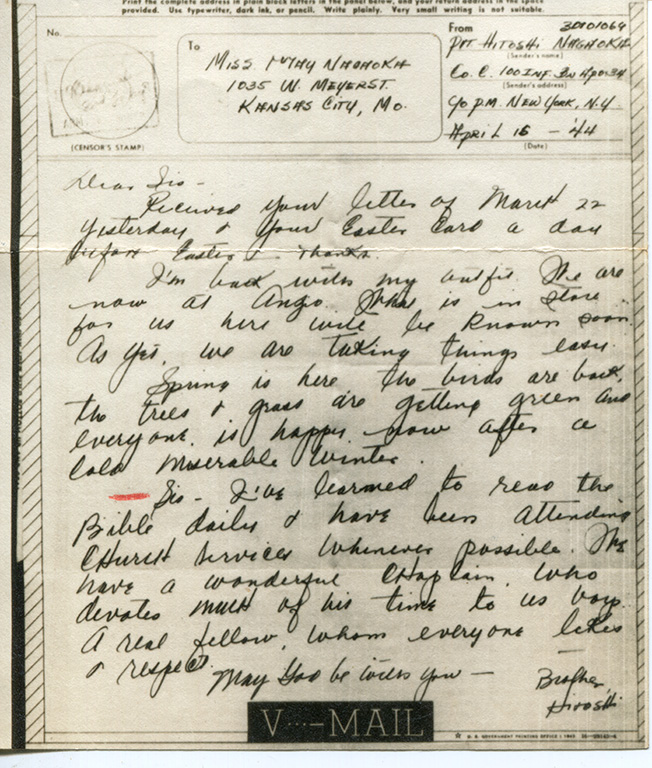 Print the complete address in plain block letters in the panel below, and your return address in the space
provided. Use typewriter, dark ink, or pencil. Write plainly. Very small writing is not suitable.
No.
(CENSOR'S STAMP)
To
MISS MAY NAGHOKA
1035 W. MEYER ST.
KANSAS CITY, MO.
From
30101064
PVT HITOSHI NAGHOKA
(Sender's name)
CO. C. 100 INF. BN APO 34
(Sender's address)
C/O P.M. NEW YORK, N.Y
APRIL 15 - 44
(Date)
Dear Sis -
Received your letter of March 22
yesterday & your Easter Card a day
before Easter - Thanks.
I'm back with my outfit. We are
now at Anzo. What is in store
for us here will be known soon.
As yet, we are taking things easy.
Spring is here the birds are back,
the trees & grass are getting green and
everyone is happy now after a
cold miserable winter.
Sis - I've learned to read the
Bible daily & have been attending
Church services whenever possible. We
have a wonderful Chaplain, who
devotes much of his time to us boys.
A real fellow, whom everyone likes
& respect.
May God be with you -
Brother,
Hitoshi
V···-MAIL
U. S. GOVERNMENT PRINTING OFFICE : 1943